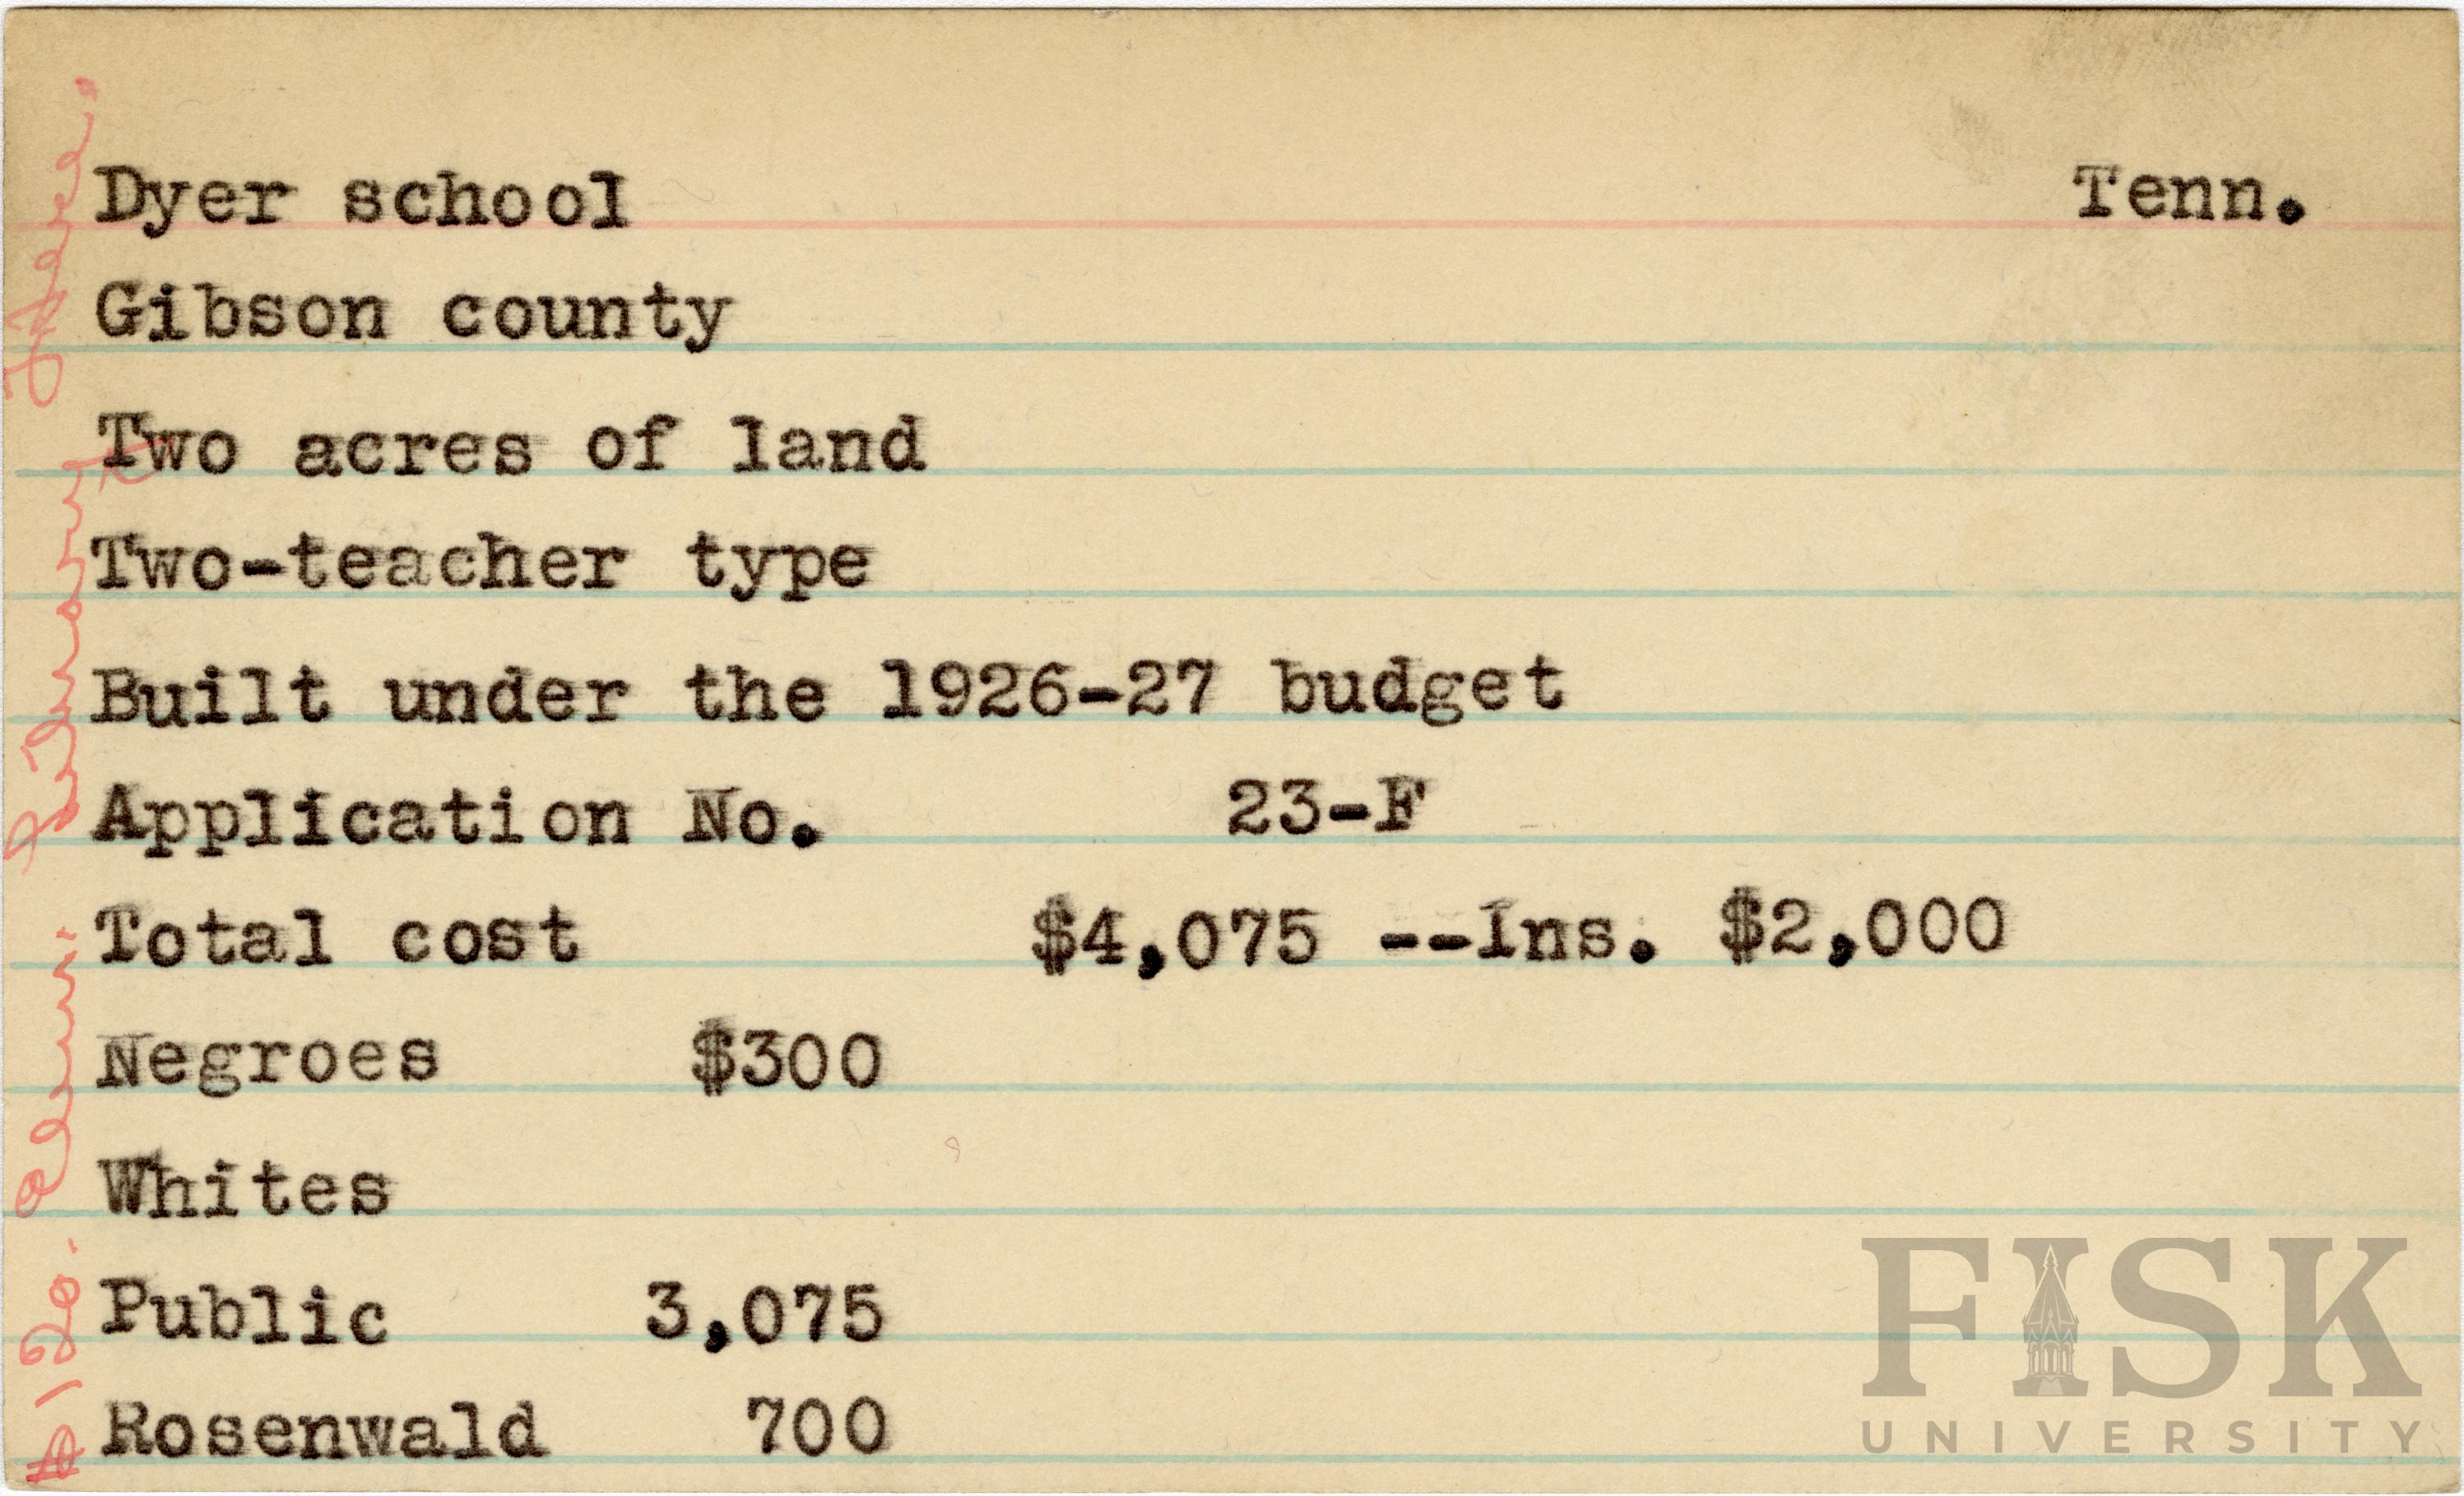 Dyer school Tenn.
Gibson county
Two acres of land
Two-teacher type
Built under the 1926-27 budget
Application No. 23-F
Total cost $4,075 --Ins. $2,000
Negroes $300
Whites
Public 3,075
Rosenwald 700
$120. Library here.
FISK
UNIVERSITY